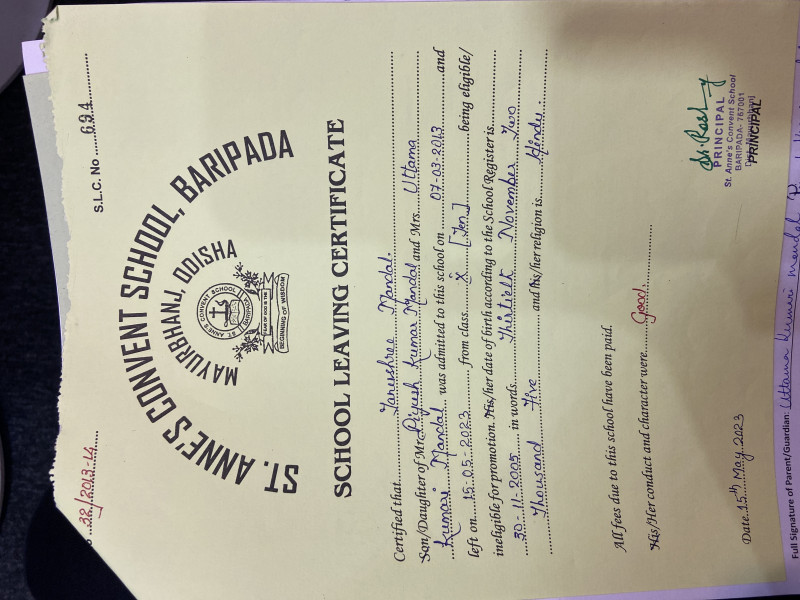 32/2013-14
S.L.C. No 694
ST. ANNE'S CONVENT SCHOOL, BARIPADA
MAYURBHANJ, ODISHA
ST. ANNE'S CONVENT SCHOOL
BARIPADA
FEAR OF GOD IS THE
BEGINNING OF WISDOM
SCHOOL LEAVING CERTIFICATE
Certified that Tanushree Mandal.
Son/Daughter of Mr. Piyush Kumar Mandal and Mrs. Uttama
Kumari Mandal was admitted to this school on 07-03-2013 and
left on 15.05.2023 from class X [Ten] being eligible/
ineligible for promotion. His/her date of birth according to the School Register is
30-11-2005 in words Thirtieth November Two
Thousand Five and his/her religion is Hindu.
All fees due to this school have been paid.
His/Her conduct and character were Good.
Date 15th May 2023
PRINCIPAL
St. Anne's Convent School
BARIPADA-757001
PRINCIPAL
Full Signature of Parent/Guardian: Uttama Kumari Mandal